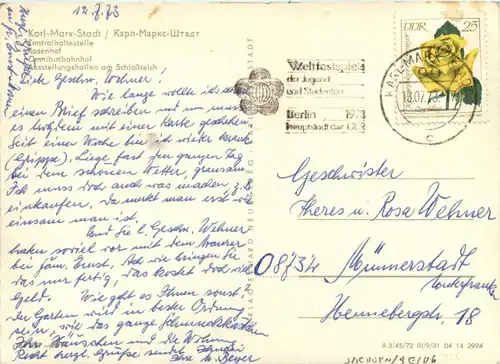 12.7.73
Karl-Marx-Stadt / Карл-Маркс-Штадт
Zentralhaltestelle
Rosenhof
Omnibusbahnhof
Ausstellungshallen am Schloßteich
Liebe Geschw. Wehner!
Wie lange wollte ich schon
einen Brief schreiben und nun muss
es trotzdem mit einer Karte geschehen.
Seit einer Woche bin ich wieder krank
(Grippe). Liege fast den ganzen Tag
bei dem schönen Wetter, grausam.
Ich muss doch auch was machen z.B.
einkaufen. Da merkt man erst wie
einsam man ist.
Und die l. Geschw. Wehner
haben soviel vor mit dem Maurer
bei Fam. Ernst, Ach wie bringen Sie
das nur fertig, das kostet doch viel
Geld. Wie geht es Ihnen sonst,
der Garten wird in bester Ordnung
sein, wie das ganze
und die Wohnung
Recht herzl. Grüße sendet Ihnen
Ihre M. Beyer
VERLAG GERHARD NEUBERT
STADT
Weltfestspiele
der Jugend
und Studenten
Berlin 1973
Hauptstadt der DDR
KARL-MARX-
13.07.73
c
DDR 25
Geschwister
Theres u. Rosa Wehner
08734 Münnerstadt
Unterfranken
Hennebergstr. 18
A 3/45/72 III/9/31 04 14 2924
SACHSEN/9E/U6